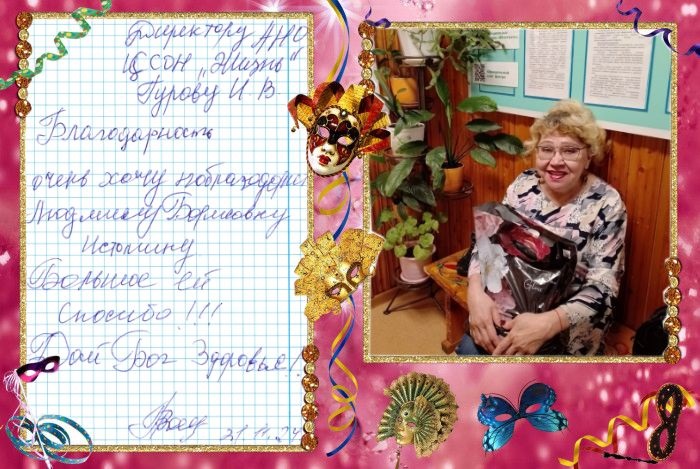 Директору АНО
ЦСОН „Жизнь"
Гурову И В
Благодарность
очень хочу поблагодарить
Людмилу Борисовну
Истомину
Большое ей
Спасибо!!!
Дай Бог Здоровье!
21.11.24